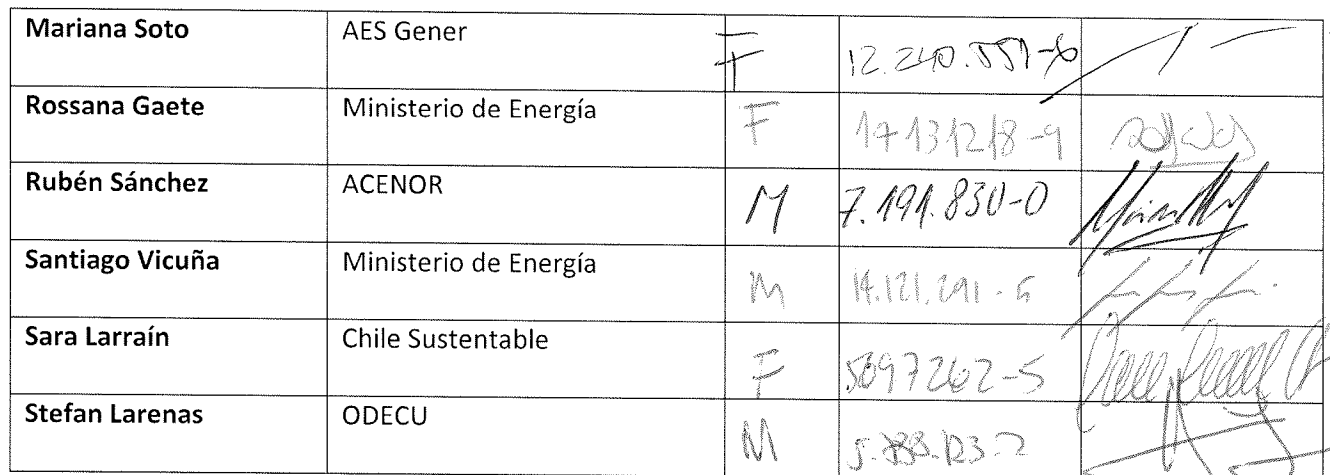 Mariana Soto AES Gener F
Rossana Gaete Ministerio de Energía F 17131218-9
Rubén Sánchez ACENOR M 7.191.830-0
Santiago Vicuña Ministerio de Energía M
Sara Larraín Chile Sustentable F 5097262-5
Stefan Larenas ODECU M